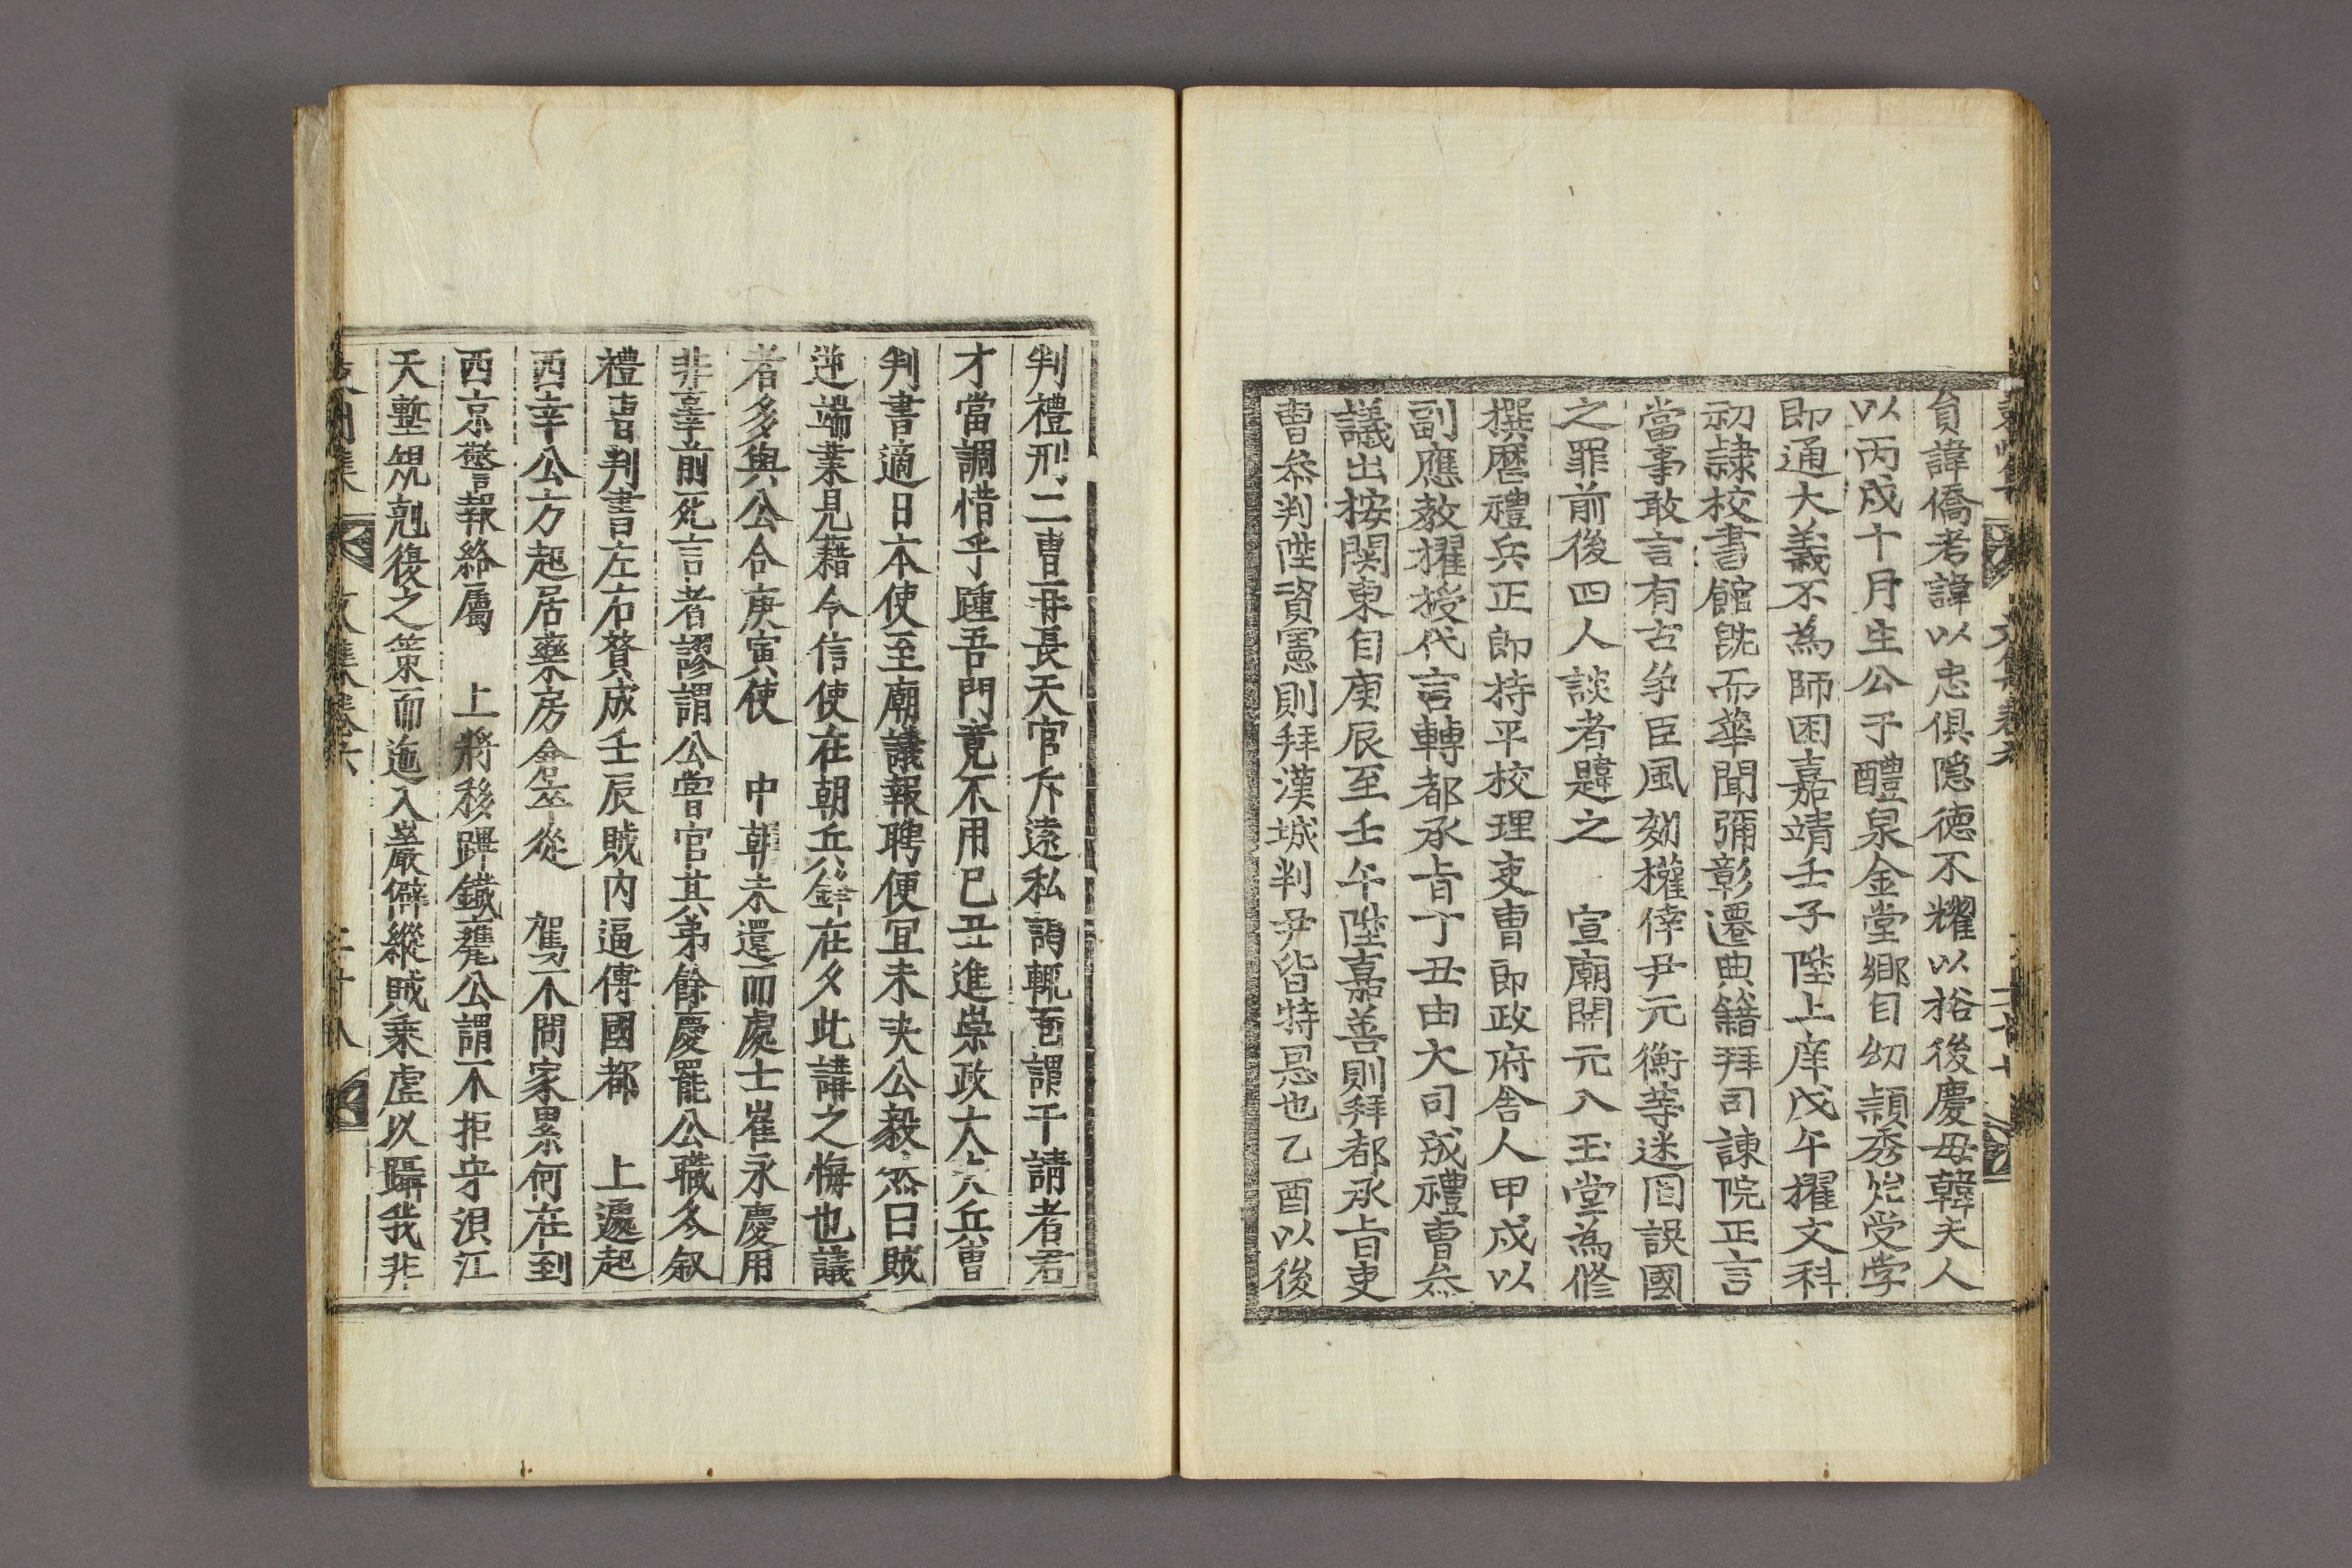 貟諱僑考諱以忠俱隱德不耀以裕後慶母韓夫人
以丙戌十月生公于醴泉金堂鄉自幼頴秀甫受学
即通大義不為師困嘉靖壬子陞上庠戊午擢文科
初隷校書館旣而華聞彌彰遷典籍拜司諌院正言
當事敢言有古爭臣風劾權倖尹元衡等迷国誤國
之罪前後四人談者韙之　宣廟開元入玉堂為修
撰歷禮兵正郎持平校理吏曹郎政府舍人甲戌以
副應敎擢授代言轉都承旨丁丑由大司成禮曹叅
議出按関東自庚辰至壬午陞嘉善則拜都承旨吏
曹叅判陞資憲則拜漢城判尹皆特恩也乙酉以後
判禮刑二曹再長天官斥遠私謁輒面謂干請者君
才當調惜乎踵吾門竟不用己丑進崇政大人兵曹
判書適日本使至廟議報聘便冝未决公毅然曰賊
逆端業見藉令信使在朝兵釁在夕此講之悔也議
者多與公合庚寅使　中朝未還而處士崔永慶用
非辜前死言者謬謂公嘗官其弟餘慶罷公職冬叙
禮曹判書左右賛成壬辰賊内逼傳國都　上遽起
西幸公方起居藥房倉卒從　駕不問家累何在到
西京警報絡屬　上將移蹕鐵甕公謂不拒守浿江
天塹規尅復之策而迤入巖僻縱賊乘虛以躡我非
文集卷六